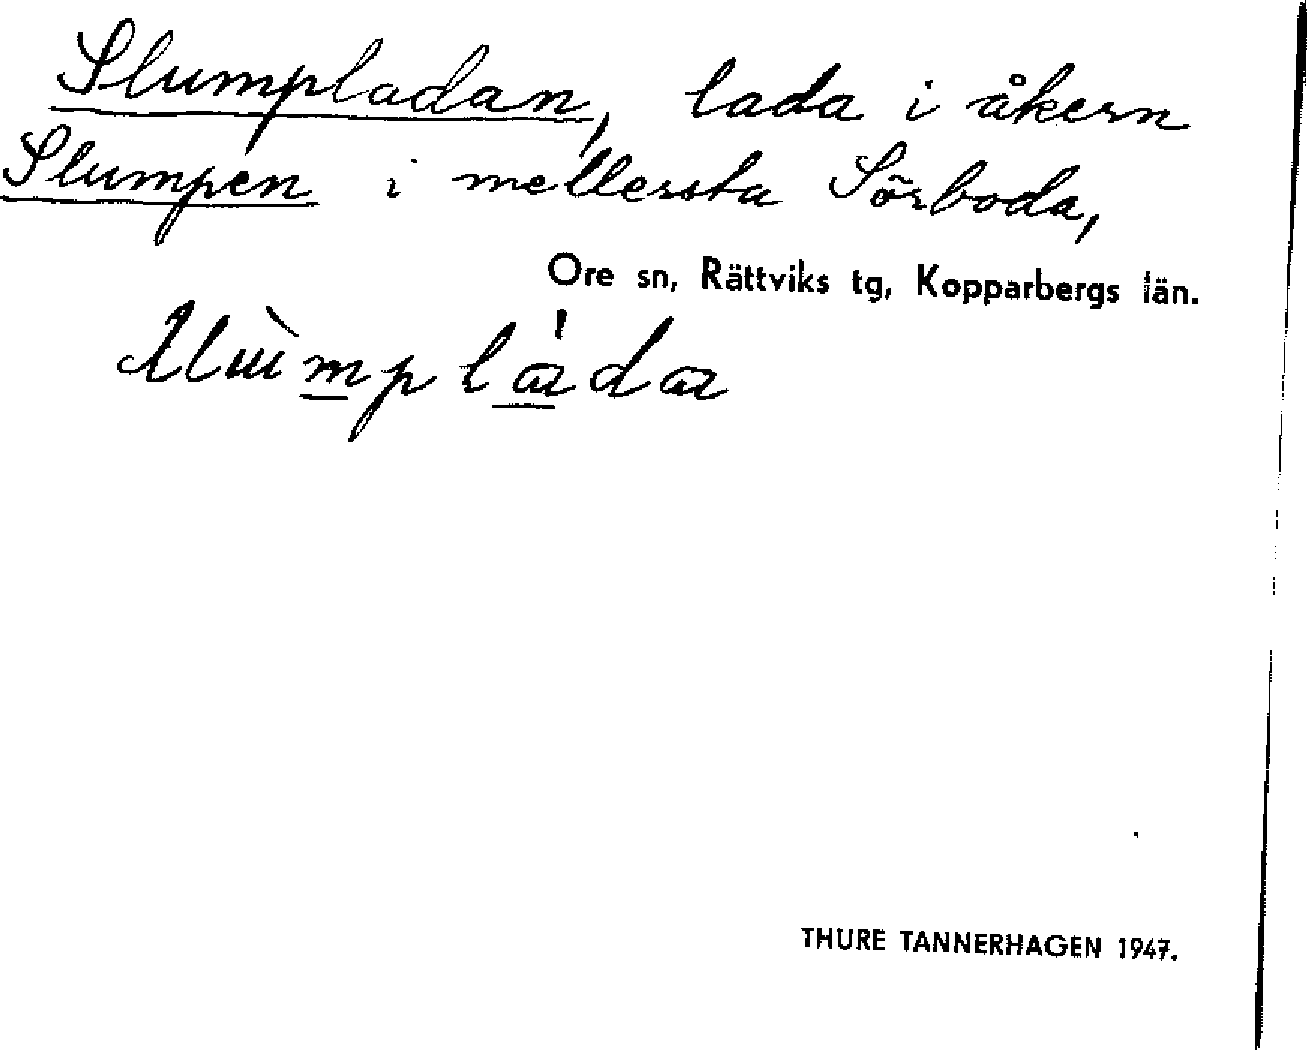 Slumpladan, lada i åkern
Slumpen i mellersta Sörboda,
Ore sn, Rättviks tg, Kopparbergs län.
THURE TANNERHAGEN 1947.